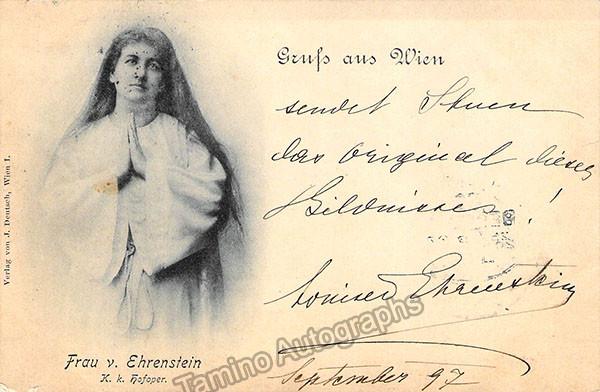 Gruß aus Wien
sendet Ihnen
das Original dieses
Bildnisses!
Louise v Ehrenstein
September 97
Frau v. Ehrenstein
K. k. Hofoper.
Verlag von J. Deutsch, Wien I.
Tamino Autographs